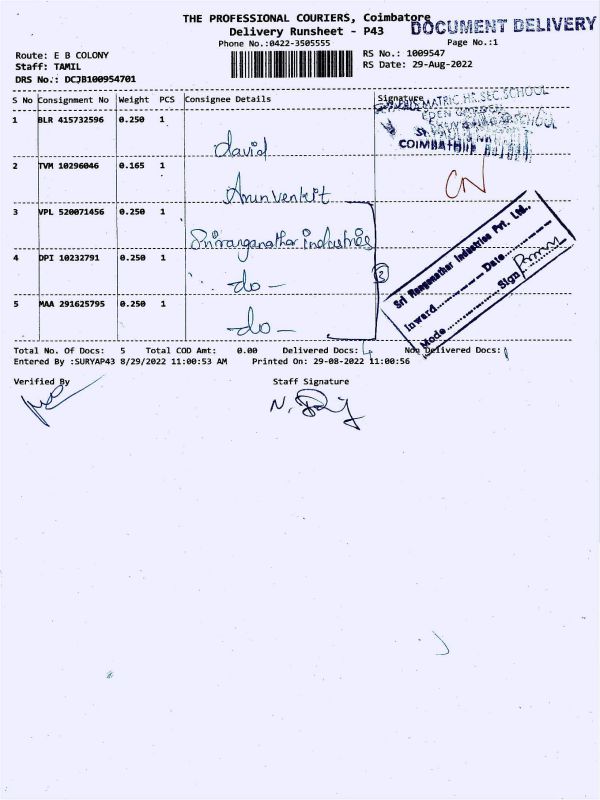 THE PROFESSIONAL COURIERS, Coimbatore
DOCUMENT DELIVERY
Delivery Runsheet - P43
Phone No.:0422-3505555
Page No.:1
Route: E B COLONY
RS No.: 1009547
Staff: TAMIL
RS Date: 29-Aug-2022
DRS No.: DCJB100954701
S No Consignment No Weight PCS Consignee Details Signature
MATRIC.HR.SEC.SCHOOL
EDEN GARDENS
COIMBATORE
1 BLR 415732596 0.250 1
david
2 TVM 10296046 0.165 1
CN
Arun Venkit
3 VPL 520071456 0.250 1
Sriranganathar industries
4 DPI 10232791 0.250 1
-do-
3
5 MAA 291625795 0.250 1
-do-
Sri Ranganathar Industries Pvt. Ltd.,
Inward............Date............
Mode............Sign............
Total No. Of Docs: 5 Total COD Amt: 0.00 Delivered Docs: 4 Non Delivered Docs: 1
Entered By :SURYAP43 8/29/2022 11:00:53 AM Printed On: 29-08-2022 11:00:56
Verified By Staff Signature